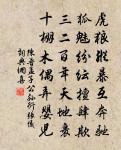 虎狼縱暴互奔馳
狐魅紛紜擅肆欺
三二百年天地裏
十棚木偶弄嬰兒
陳普孟子公孫衍張儀
詞典網書